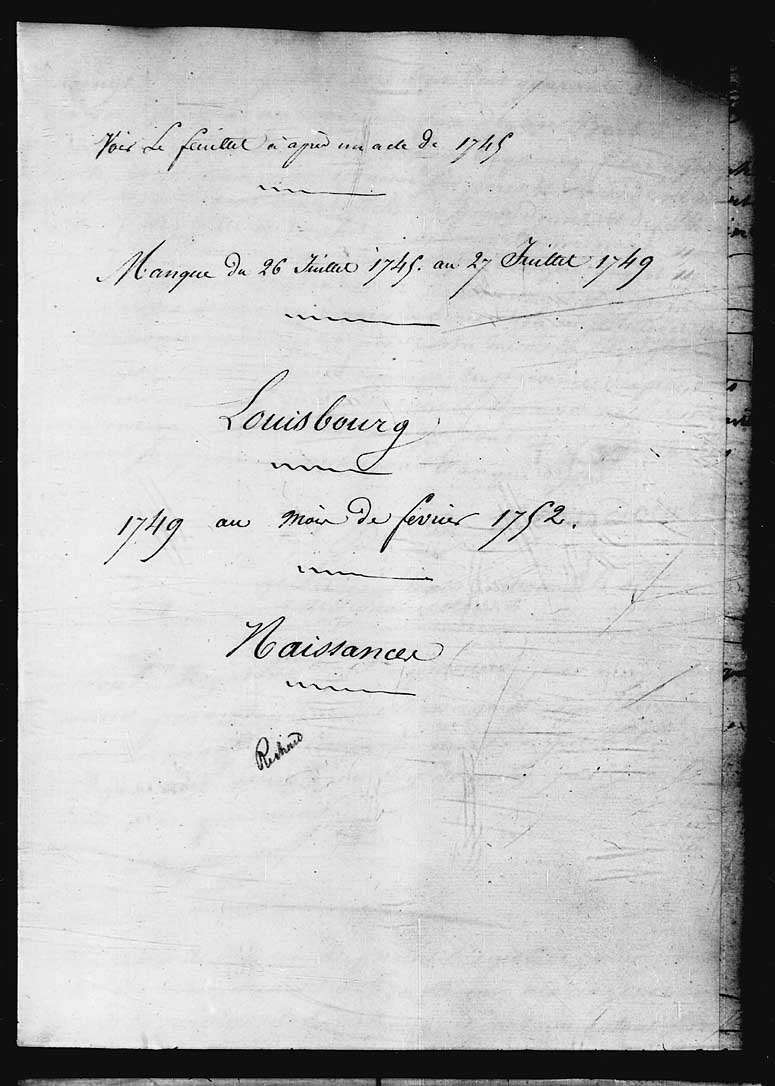 Voir Le feuillet ci après un acte de 1745
Manque du 26 Juillet 1745. au 27 Juillet 1749
Louisbourg
1749 au mois de fevrier 1752.
Naissances